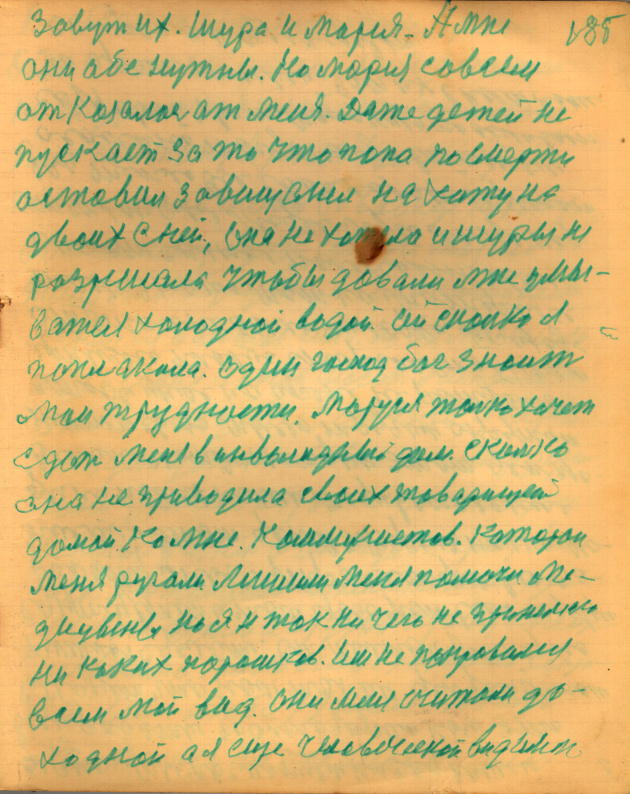 Зовут их. Шура и Мария. А мне
185
они обе нужны. Но Мария совсем
отказалас от меня. Даже детей не
пускает за то что попа по смерти
оставил завищание на хату на
двоих с ней, она не и Шуры не
розришала чтобы довали мне умы-
ватся холодной водой. сколко я
поплакала. один господ бог знаит
мои трудности. Маруся толко хочет
здат меня в инвалидный дом. сколко
она не приводила своих товарищей
домой. Ко мне. Коммунистов. Которои
меня ругали Лишили меня помочи ме-
но я и так ни чего не
ни каких порошков. Им не
всем мой вид. Они меня считали до-
ходной а я еще человеческой вид